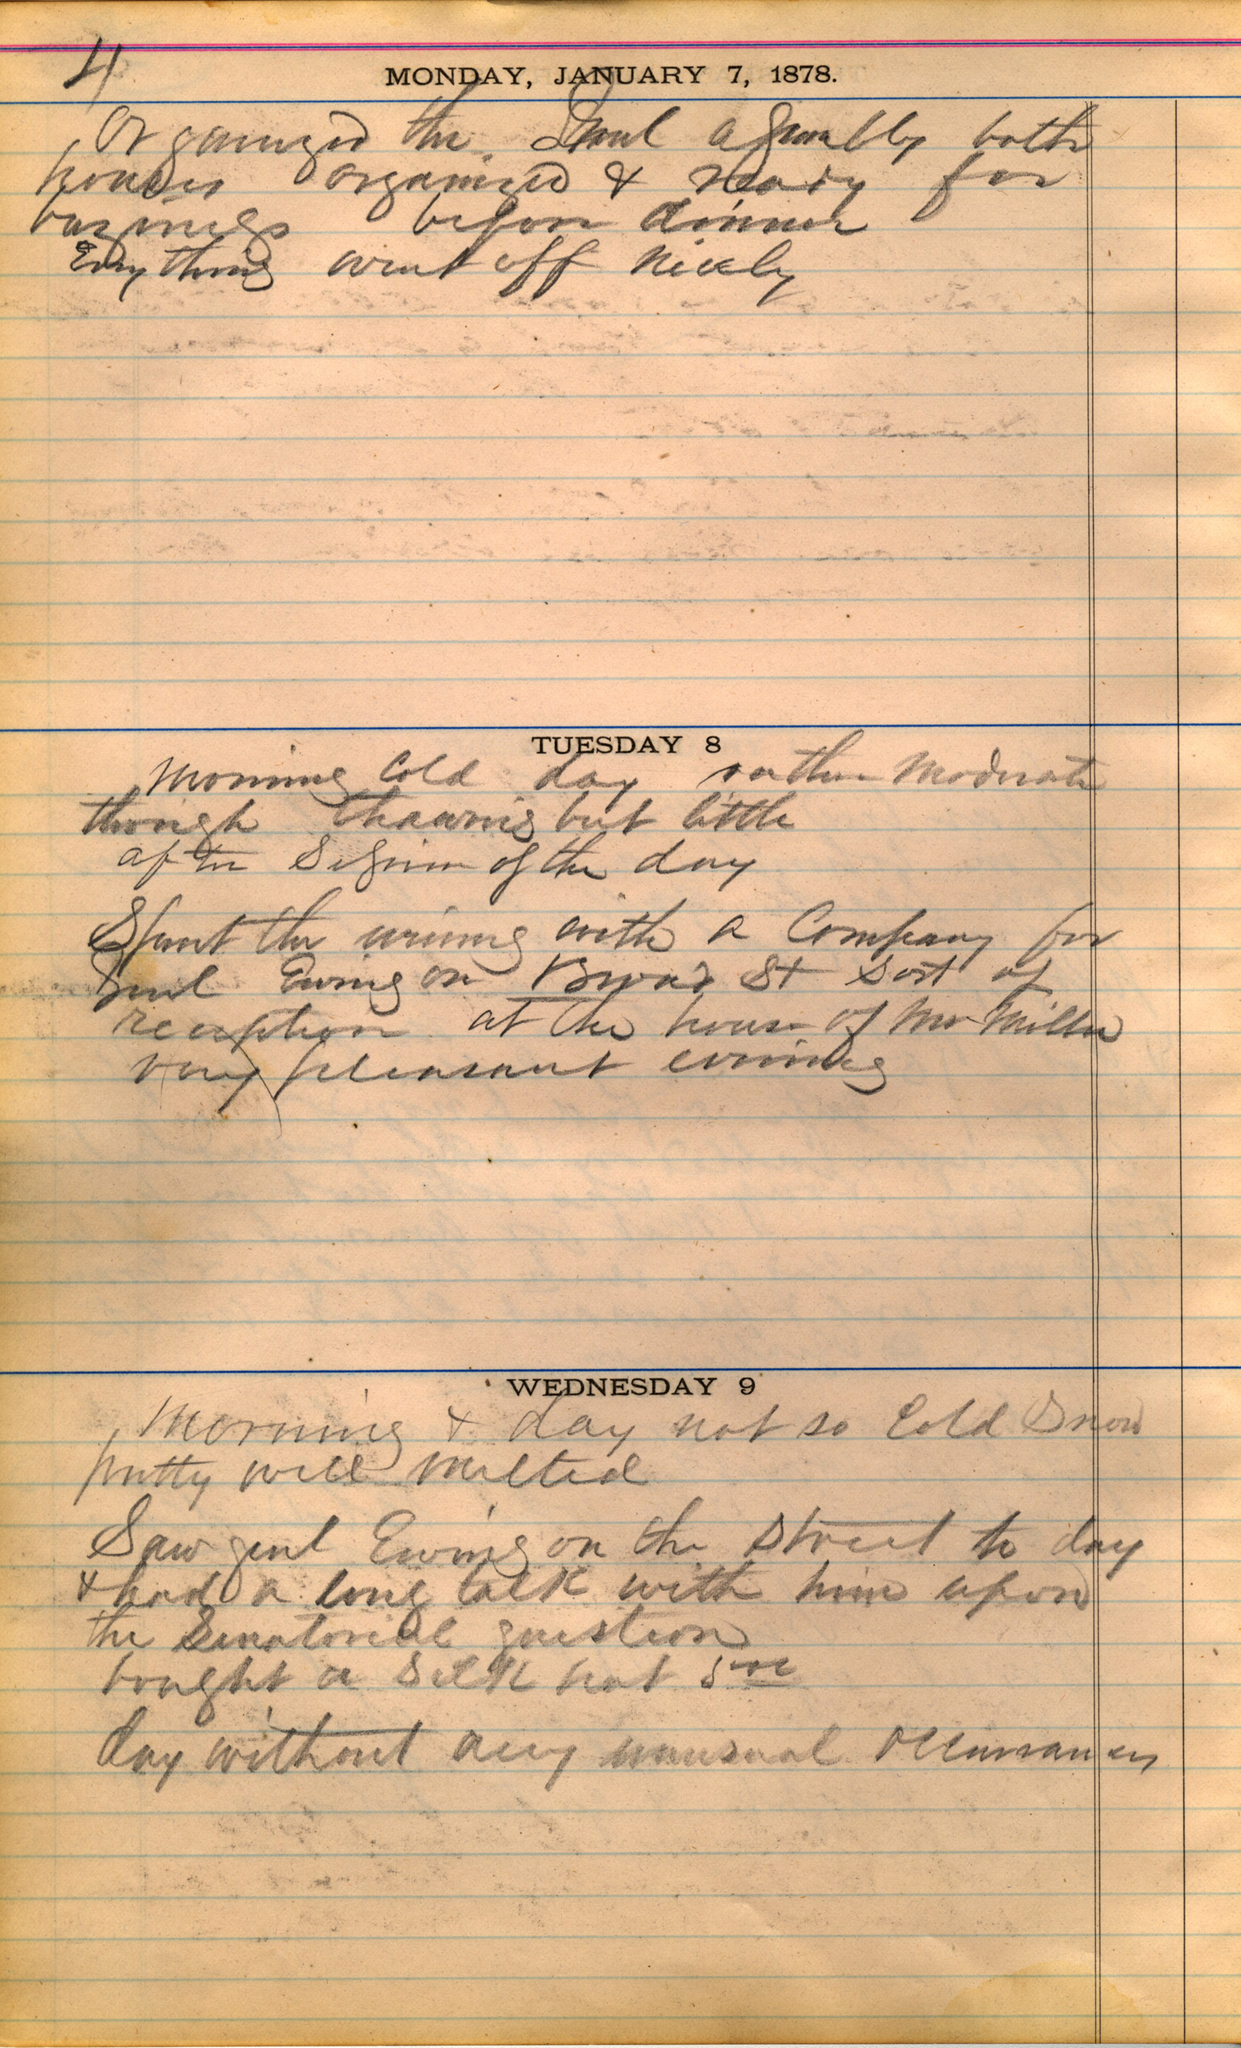 4
MONDAY, JANUARY 7, 1878.
Organized the Genl assembly both
houses organized & ready for
business before dinner
Everything went off nicely
TUESDAY 8
Morning Cold day rather Moderate
though thawing but little
after Session of the day
Spent the evening with a Company for
Genl Ewing on Broad St Sort of
reception at the house of Mr Miller
very pleasant evening
WEDNESDAY 9
Morning & day not so Cold Snow
pretty well melted
Saw genl Ewing on the street to day
& had a long talk with him upon
the Senatorial question
bought a Silk hat 5.00
day without any unusual Occurrances